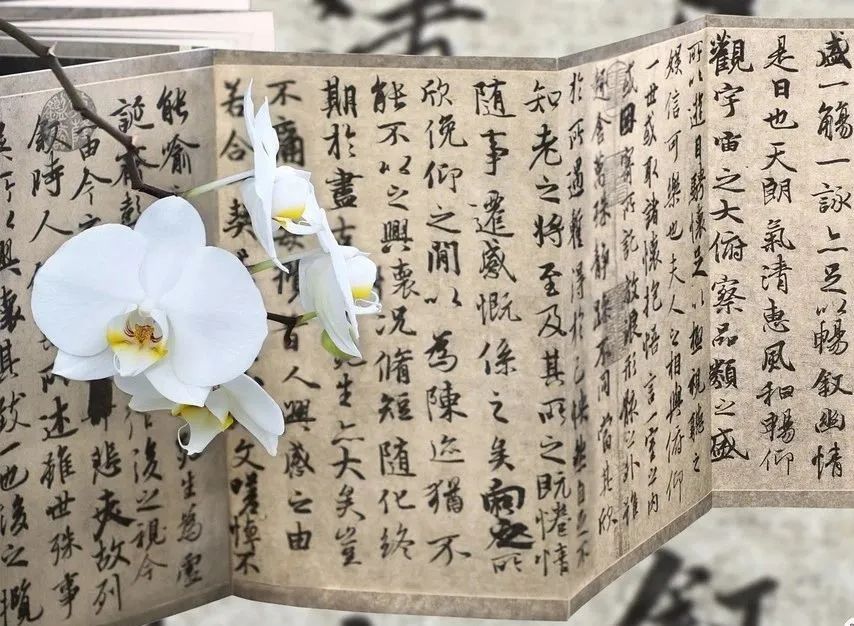 盛一觴一詠亦足以暢叙幽情
是日也天朗氣清惠風和暢仰
觀宇宙之大俯察品類之盛
所以遊目騁懷足以極視聽之
娛信可樂也夫人之相與俯仰
一世或取諸懷抱悟言一室之内
或因寄所託放浪形骸之外雖
趣舍萬殊靜躁不同當其欣
於所遇暫得於己怏然自足不
知老之將至及其所之既惓情
隨事遷感慨係之矣向之所
欣俛仰之閒以為陳迹猶不
能不以之興懷況脩短隨化終
期於盡古生亦大矣豈
不痛人興感之由
若合契文嗟悼不
能喻生為虛
誕齊彭作後之視今
由今悲夫故列
叙時人所述雖世殊事
異所以興懷其致一也後之攬